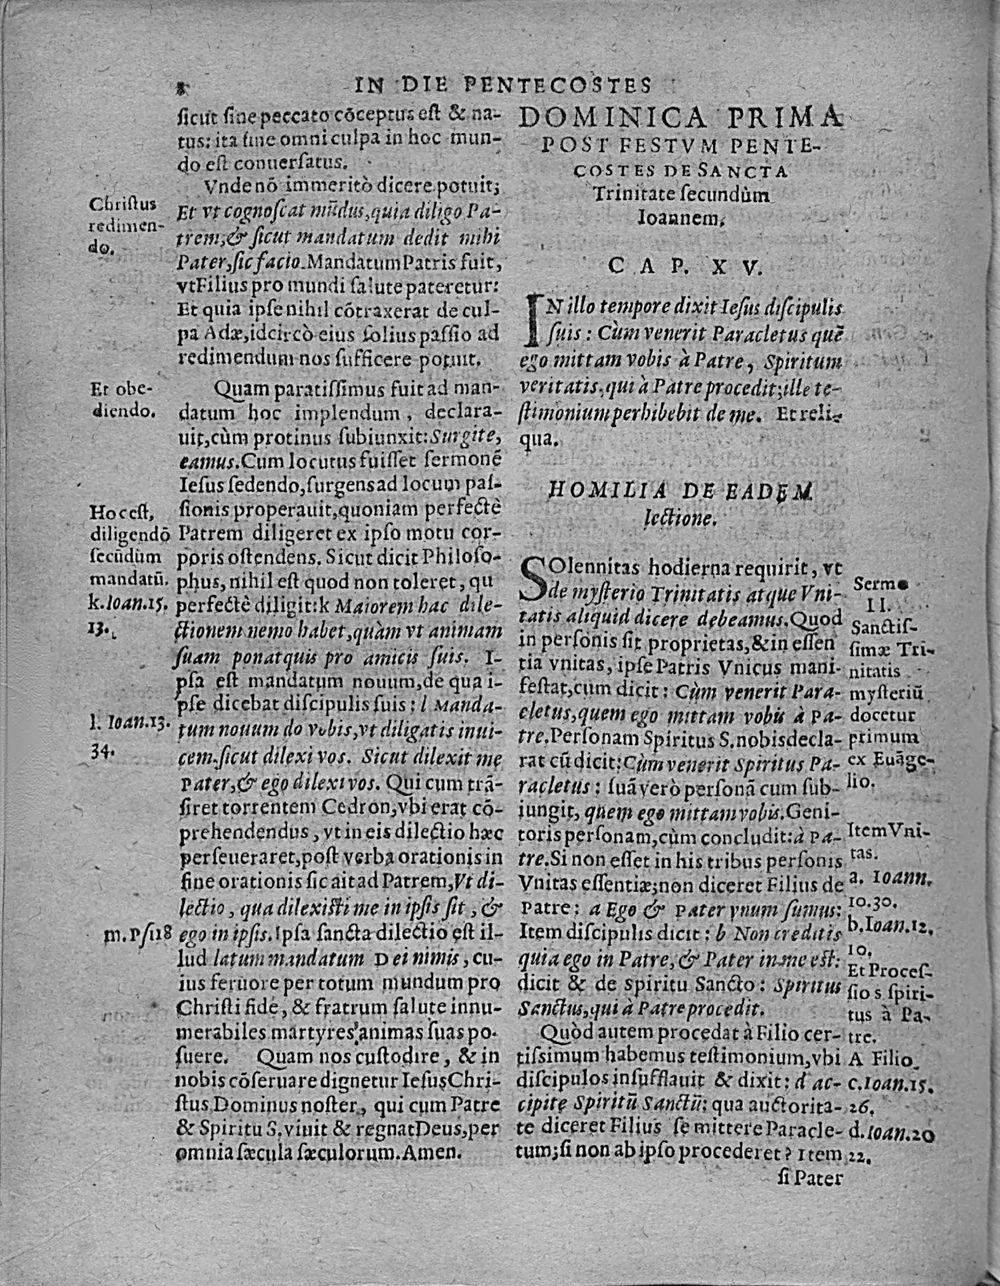 8 IN DIE PENTECOSTES
sicut sine peccato cōceptus est & na-
tus: ita sine omni culpa in hoc mun-
do est conuersatus.
Vnde nō immeritò dicere potuit;
Et vt cognoscat mūdus, quia diligo Pa-
trem, & sicut mandatum dedit mihi
Pater, sic facio. Mandatum Patris fuit,
vt Filius pro mundi salute pateretur:
Et quia ipse nihil cōtraxerat de cul-
pa Adæ, idcircò eius solius passio ad
redimendum nos sufficere potuit.
Quam paratissimus fuit ad man-
datum hoc implendum, declara-
uit, cùm protinus subiunxit: Surgite,
eamus. Cum locutus fuisset sermonē
Iesus sedendo, surgens ad locum pas-
sionis properauit, quoniam perfectè
Patrem diligeret ex ipso motu cor-
poris ostendens. Sicut dicit Philoso-
phus, nihil est quod non toleret, qu
perfectè diligit: k Maiorem hac dile-
ctionem nemo habet, quàm vt animam
suam ponat quis pro amicis suis. I-
psa est mandatum nouum, de qua i-
pse dicebat discipulis suis: l Manda-
tum nouum do vobis, vt diligatis inui-
cem, sicut dilexi vos. Sicut dilexit me
Pater, & ego dilexi vos. Qui cum trā-
siret torrentem Cedron, vbi erat cō-
prehendendus, vt in eis dilectio hæc
perseueraret, post verba orationis in
fine orationis sic ait ad Patrem, Vt di-
lectio, qua dilexisti me in ipsis sit, &
ego in ipsis. Ipsa sancta dilectio est il-
lud latum mandatum Dei nimis, cu-
ius feruore per totum mundum pro
Christi fide, & fratrum salute innu-
merabiles martyres animas suas po-
suere. Quam nos custodire, & in
nobis cōseruare dignetur Iesus Chri-
stus Dominus noster, qui cum Patre
& Spiritu S. viuit & regnat Deus, per
omnia sæcula sæculorum. Amen.
Christus
redimen-
do.
Et obe-
diendo.
Hoc est,
diligendō
secūdum
mandatū.
k. Ioan. 15.
13.
l. Ioan. 13.
34.
m. Psi 18
DOMINICA PRIMA
POST FESTVM PENTE-
COSTES DE SANCTA
Trinitate secundùm
Ioannem.
CAP. XV.
IN illo tempore dixit Iesus discipulis
suis: Cùm venerit Paracletus quē
ego mittam vobis à Patre, Spiritum
veritatis, qui à Patre procedit; ille te-
stimonium perhibebit de me. Et reli-
qua.
HOMILIA DE EADEM
lectione.
SOlennitas hodierna requirit, vt
de mysterio Trinitatis atque Vni-
tatis aliquid dicere debeamus. Quod
in personis sit proprietas, & in essen
tia vnitas, ipse Patris Vnicus mani-
festat, cum dicit: Cùm venerit Para-
cletus, quem ego mittam vobis à Pa-
tre. Personam Spiritus S. nobis decla-
rat cū dicit: Cùm venerit Spiritus Pa-
racletus: suā verò personā cum sub-
iungit, quem ego mittam vobis. Geni-
toris personam, cùm concludit: à Pa-
tre. Si non esset in his tribus personis
Vnitas essentiæ; non diceret Filius de
Patre: a Ego & Pater vnum sumus:
Item discipulis dicit: b Non creditis
quia ego in Patre, & Pater in me est:
dicit & de spiritu Sancto: Spiritus
Sanctus, qui à Patre procedit.
Quòd autem procedat à Filio cer-
tissimum habemus testimonium, vbi
discipulos insufflauit & dixit: d ac-
cipite Spiritū Sanctū: qua auctorita-
te diceret Filius se mittere Paracle-
tum; si non ab ipso procederet? Item
si Pater
Sermo
II.
Sanctis-
simæ Tri-
nitatis
mysteriū
docetur
primum
ex Euāge-
lio.
Item Vni-
tas.
a. Ioann.
10. 30.
b. Ioan. 12.
10.
Et Proces-
sio s spiri-
tus à Pa-
tre.
A Filio
c. Ioan. 15.
26.
d. Ioan. 20
22.